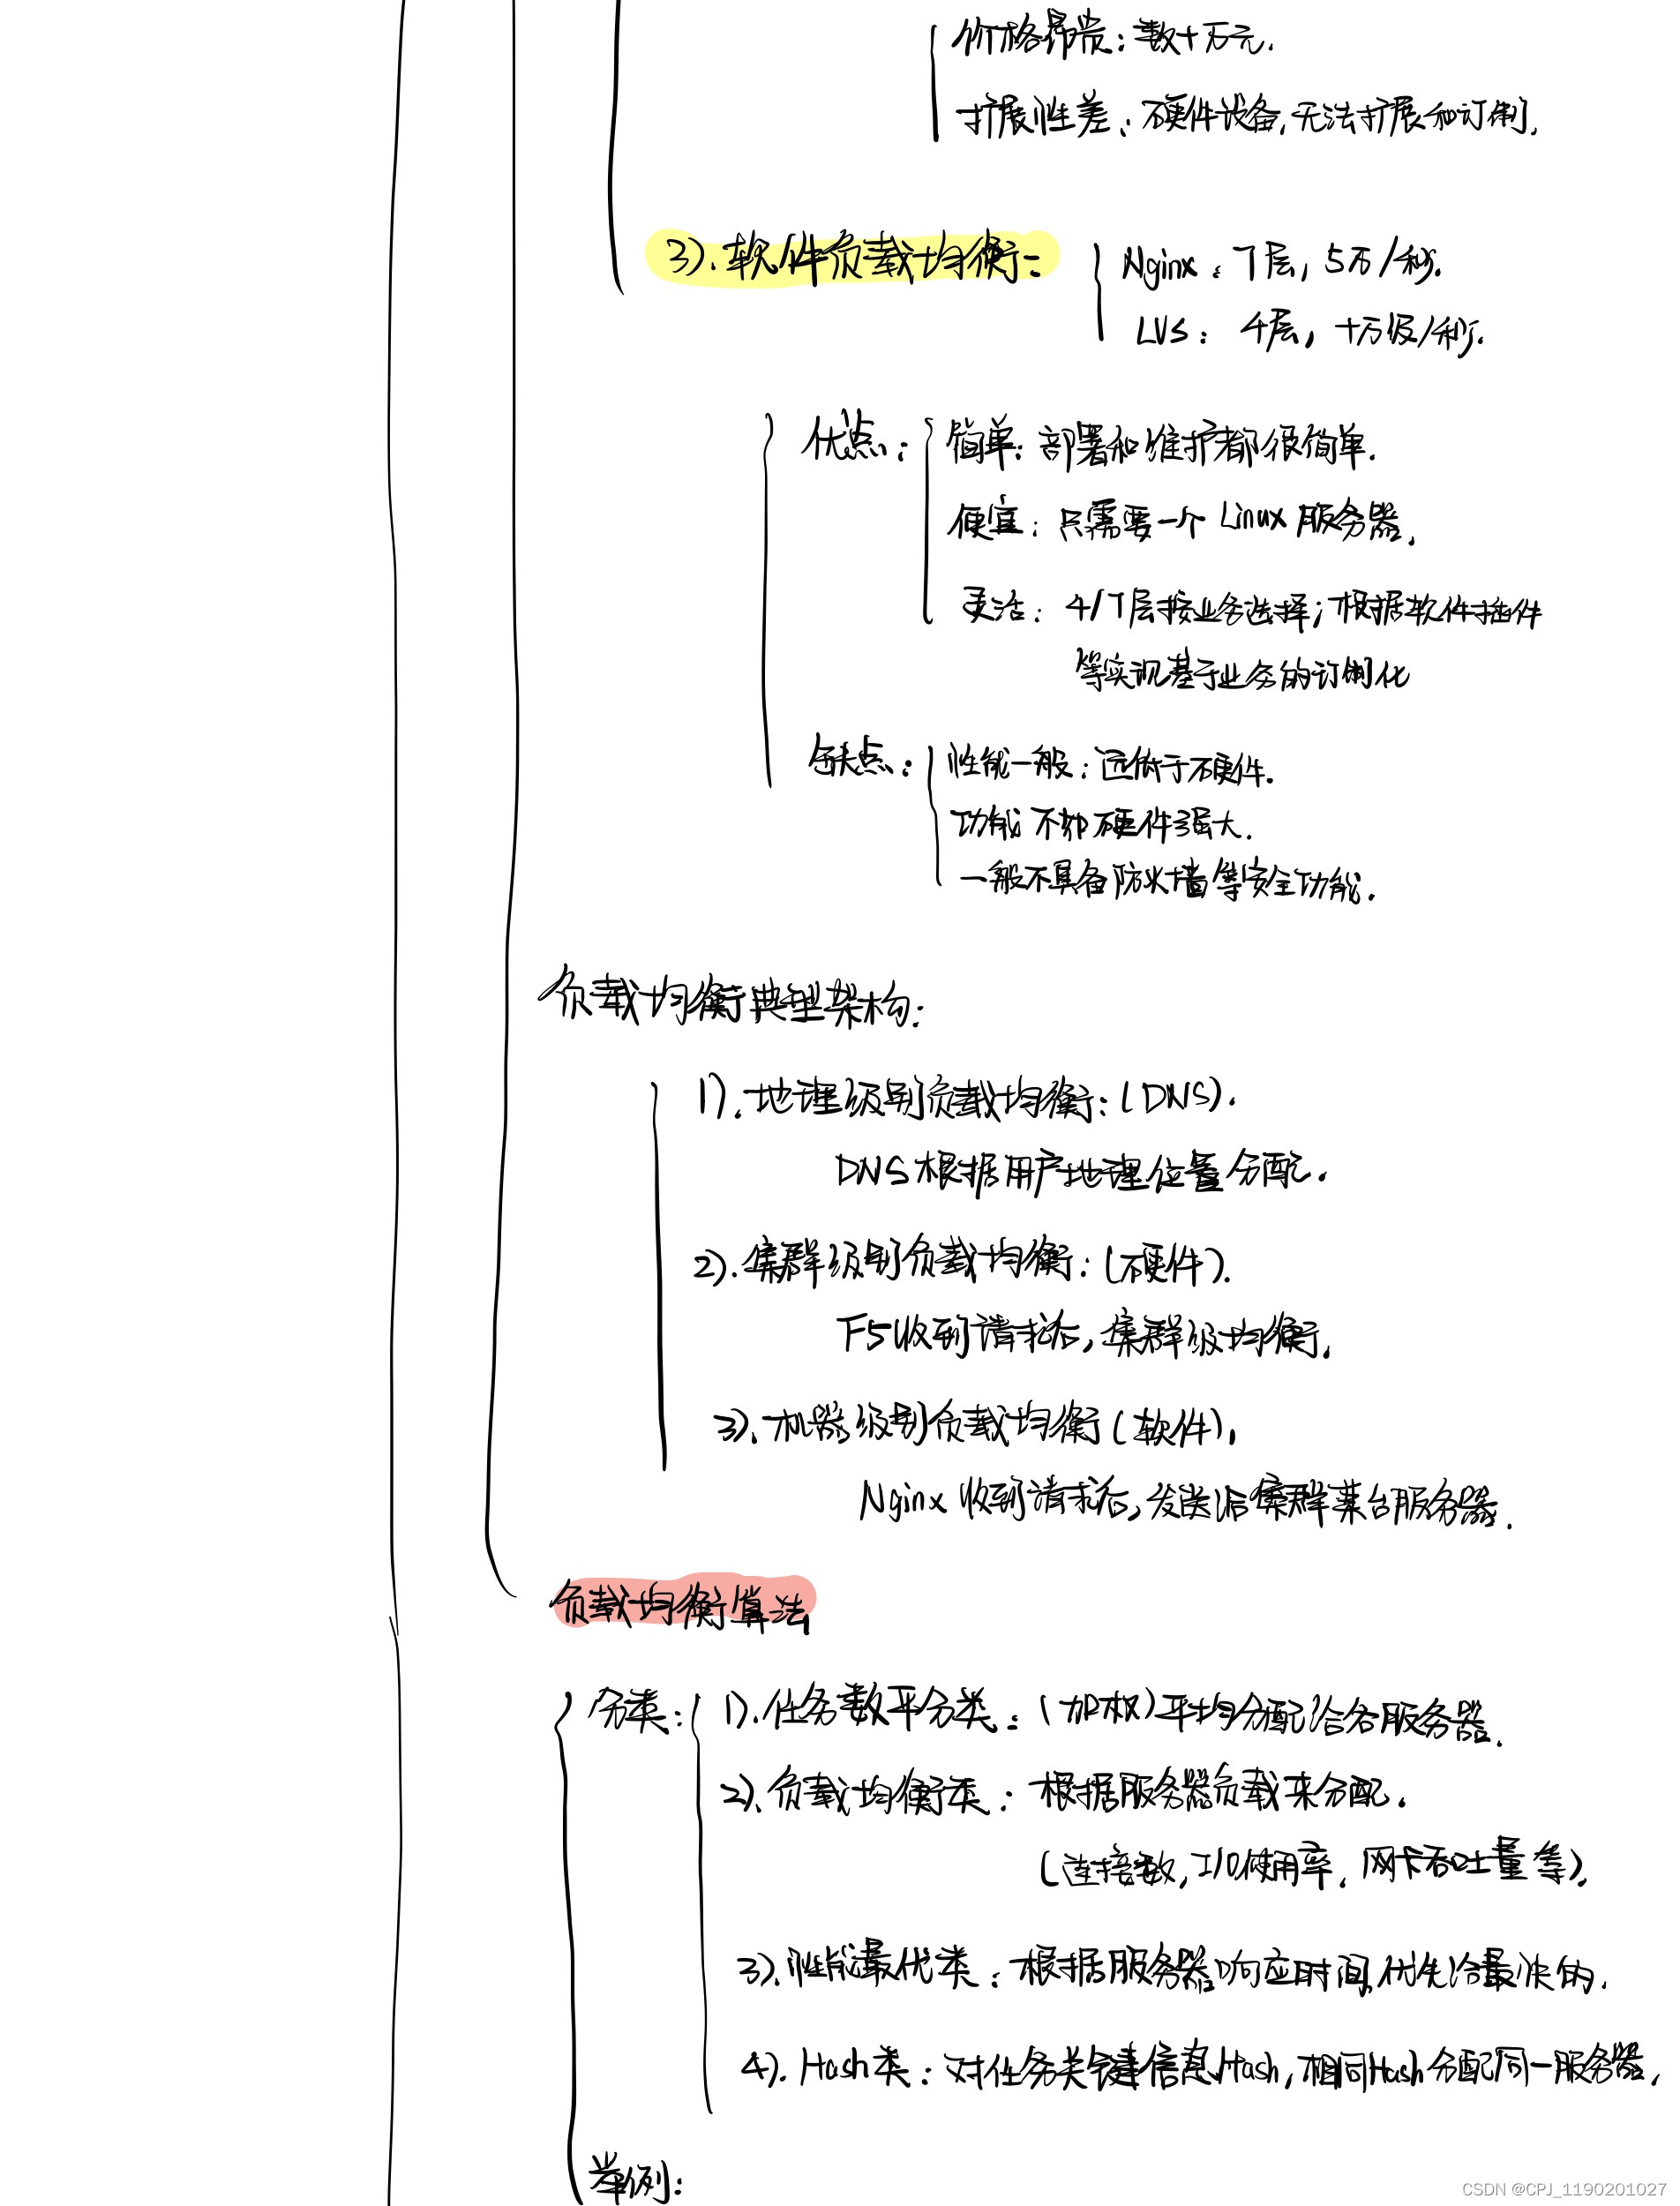 价格昂贵：数十万元.
扩展性差：硬件设备,无法扩展和订制.
3).软件负载均衡：
Nginx：7层, 5万/秒.
LVS： 4层, 十万级/秒.
优点：
简单：部署和维护都很简单.
便宜：只需要一个Linux服务器.
灵活：4/7层按业务选择；根据软件插件
等实现基于业务的订制化
缺点：
性能一般：远低于硬件.
功能不如硬件强大.
一般不具备防火墙等安全功能.
负载均衡典型架构：
1).地理级别负载均衡：(DNS).
DNS根据用户地理位置分配.
2).集群级别负载均衡：(硬件).
F5收到请求后,集群级均衡.
3).机器级别负载均衡(软件).
Nginx收到请求后,发送给集群某台服务器.
负载均衡算法
分类：
1).任务数平分类：(加权)平均分配给各服务器.
2).负载均衡类：根据服务器负载来分配.
(连接数,I/O使用率,网卡吞吐量等).
3).性能最优类：根据服务器响应时间,优先给最快的.
4).Hash类：对任务关键信息Hash,相同Hash分配同一服务器.
举例：
CSDN @CPJ_1190201027